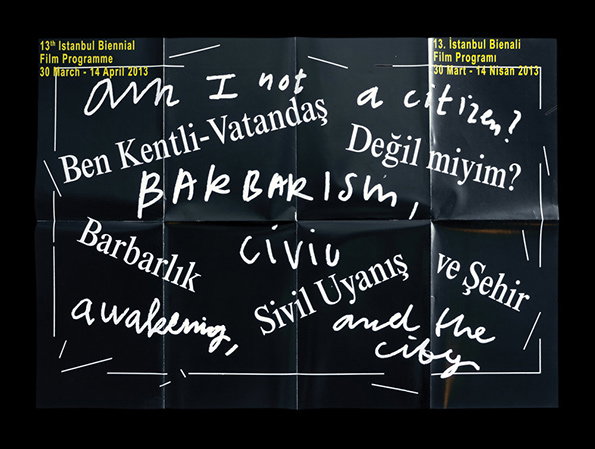 13th Istanbul Biennial
Film Programme
30 March - 14 April 2013
13. İstanbul Bienali
Film Programı
30 Mart - 14 Nisan 2013
am I not a citizen?
Ben Kentli-Vatandaş
Değil miyim?
BARBARISM,
Barbarlık
civic
Sivil Uyanış
ve Şehir
awakening,
and the
city